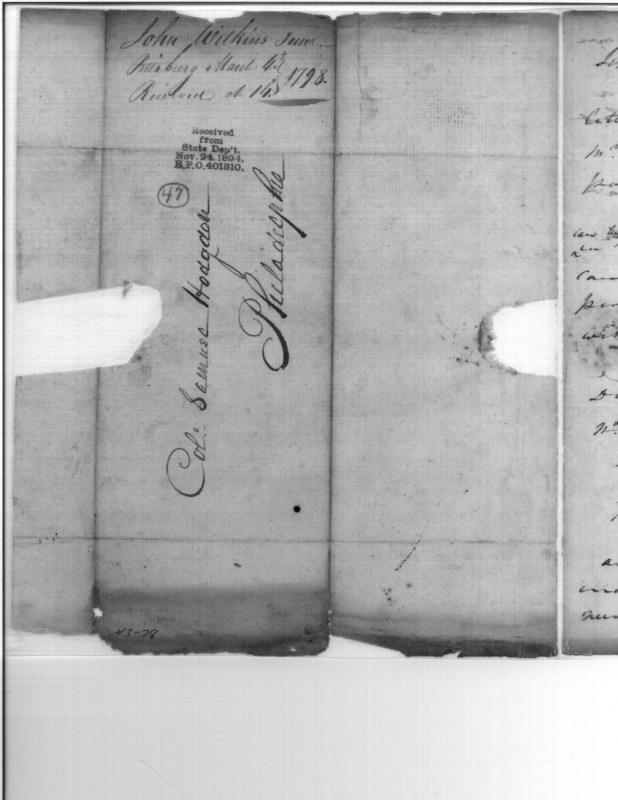 John Wilkins Junr.
Pittsburg March 4th 1798.
Received at 14th
Received
from
State Dep't.
Nov. 24, 1894.
R.P.O. 401310.
47
Col: Samuel Hodgdon
Philadelphia
43-78